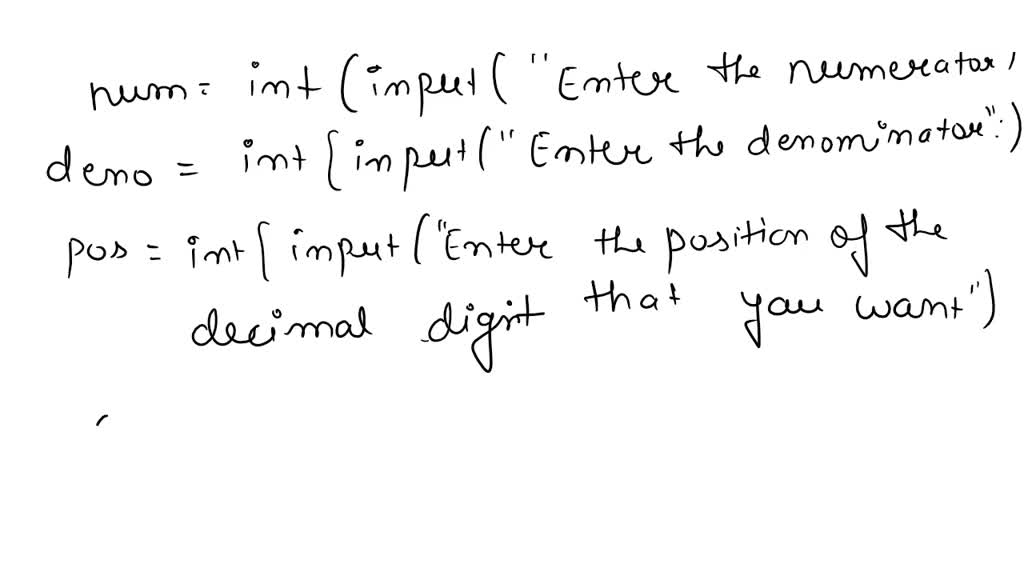 num = int (input( "Enter the numerator,
deno = int [input("Enter the denominator":)
pos = int [ input ("Enter the position of the
decimal digit that you want")